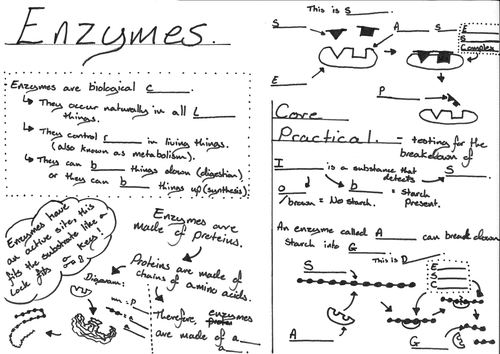 Enzymes.
Enzymes are biological c______.
They occur naturally in all L______
things.
They control r______ in living things.
(also known as metabolism).
They can b______ things down (digestion)
or they can b______ things up (synthesis).
Enzymes have
an active site, this
fits the substrate like a
lock fits a key!
Enzymes are
made of proteins.
Proteins are made of
chains of amino acids.
Diagram:
Therefore, enzymes
are made of a______
a______.
This is S______.
S______
A______ s______
E______
S______
Complex
E______
P______
Core
Practical. = testing for the
breakdown of
S______.
I______ is a substance that
detects
o______/brown = No starch.
b______ = Starch
present.
An enzyme called A______ can break down
Starch into G______.
This is D______.
S______
E______
S______
C______
A______
G______